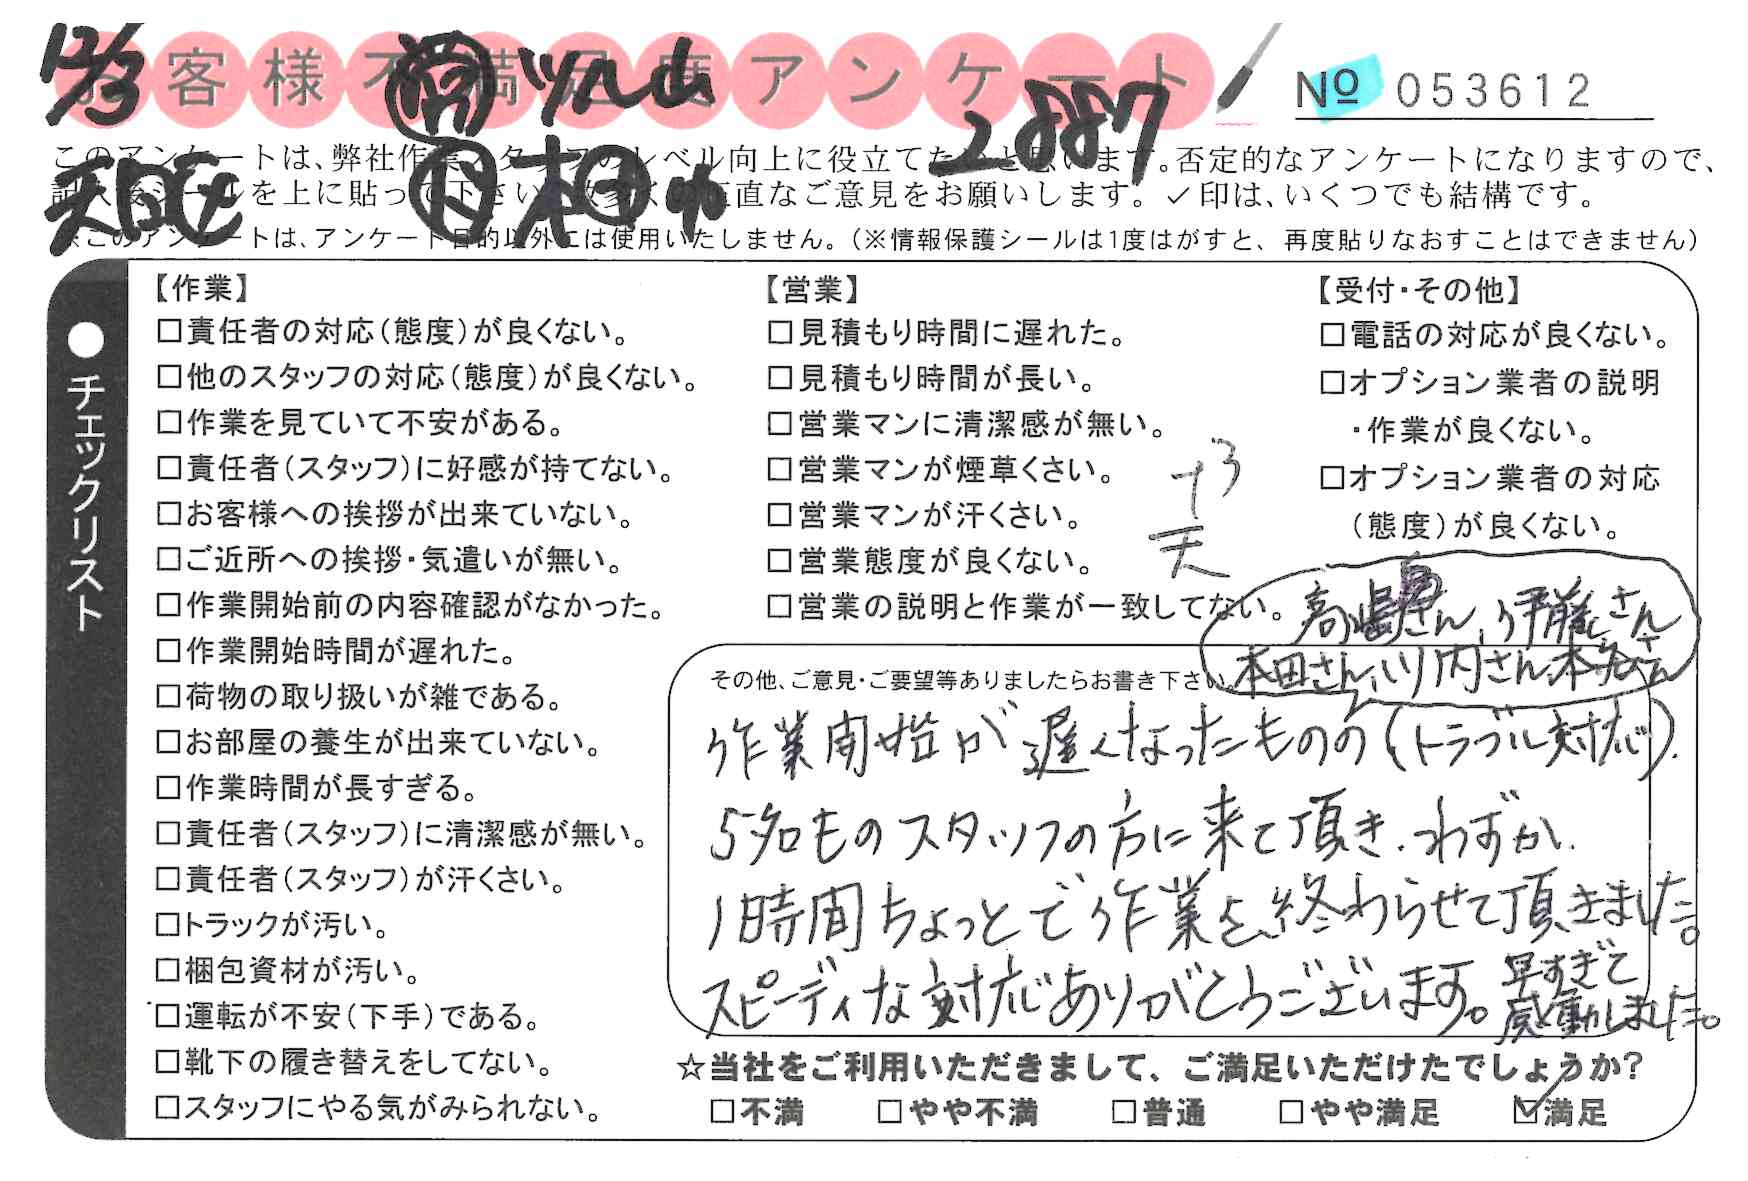 12/3
お客様不満足度アンケート
営 ツル山
2887
No 053612
このアンケートは、弊社作業スタッフのレベル向上に役立てたいと思います。否定的なアンケートになりますので、
記入後シールを上に貼って下さい。数多くの正直なご意見をお願いします。✓印は、いくつでも結構です。
天白区
作 本田や
※このアンケートは、アンケート目的以外には使用いたしません。（※情報保護シールは1度はがすと、再度貼りなおすことはできません）
●チェックリスト
【作業】
□責任者の対応（態度）が良くない。
□他のスタッフの対応（態度）が良くない。
□作業を見ていて不安がある。
□責任者（スタッフ）に好感が持てない。
□お客様への挨拶が出来ていない。
□ご近所への挨拶・気遣いが無い。
□作業開始前の内容確認がなかった。
□作業開始時間が遅れた。
□荷物の取り扱いが雑である。
□お部屋の養生が出来ていない。
□作業時間が長すぎる。
□責任者（スタッフ）に清潔感が無い。
□責任者（スタッフ）が汗くさい。
□トラックが汚い。
□梱包資材が汚い。
□運転が不安（下手）である。
□靴下の履き替えをしてない。
□スタッフにやる気がみられない。
【営業】
□見積もり時間に遅れた。
□見積もり時間が長い。
□営業マンに清潔感が無い。
□営業マンが煙草くさい。
□営業マンが汗くさい。
□営業態度が良くない。
□営業の説明と作業が一致してない。
天
【受付・その他】
□電話の対応が良くない。
□オプション業者の説明
・作業が良くない。
□オプション業者の対応
（態度）が良くない。
高嶋さん、伊藤さん
本田さん、川内さん、本多さん
その他、ご意見・ご要望等ありましたらお書き下さい。
作業開始が遅くなったものの（トラブル対応）、
5名ものスタッフの方に来て頂き、わずか、
1時間ちょっとで作業を終わらせて頂きました。
スピーディな対応ありがとうございます。早すぎて
感動しました。
☆当社をご利用いただきまして、ご満足いただけたでしょうか?
□不満 □やや不満 □普通 □やや満足 ☑満足